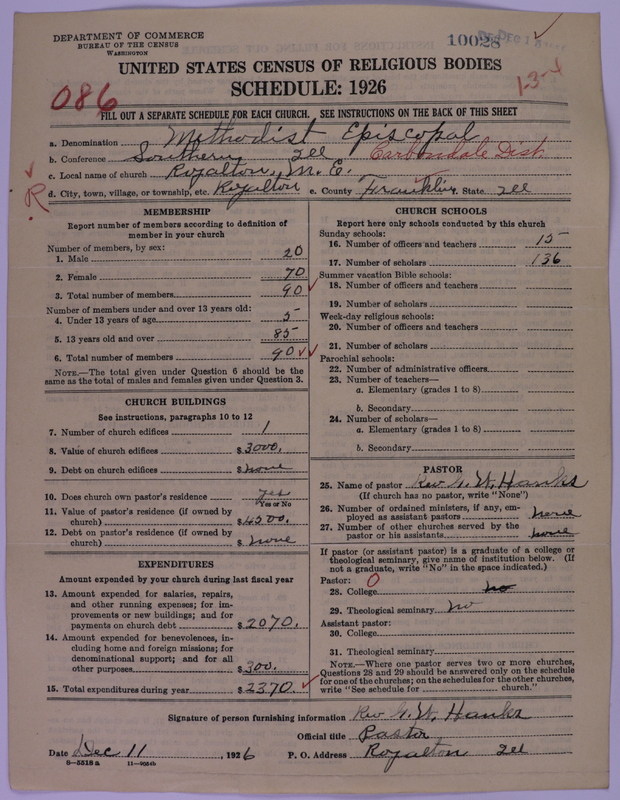 DEPARTMENT OF COMMERCE
BUREAU OF THE CENSUS
WASHINGTON
10028
DEC 18
UNITED STATES CENSUS OF RELIGIOUS BODIES
SCHEDULE: 1926
1-3-4
086
FILL OUT A SEPARATE SCHEDULE FOR EACH CHURCH. SEE INSTRUCTIONS ON THE BACK OF THIS SHEET
a. Denomination Methodist Episcopal
b. Conference Southern Ill Carbondale Dist.
c. Local name of church Royalton, M. E.
R
d. City, town, village, or township, etc. Royalton e. County Franklin f. State Ill
MEMBERSHIP
Report number of members according to definition of
member in your church
Number of members, by sex:
1. Male 20
2. Female 70
3. Total number of members 90
Number of members under and over 13 years old:
4. Under 13 years of age 5
5. 13 years old and over 85
6. Total number of members 90
NOTE.—The total given under Question 6 should be
same as the total of males and females given under Question 3.
CHURCH BUILDINGS
See instructions, paragraphs 10 to 12
7. Number of church edifices 1
8. Value of church edifices $3000.
9. Debt on church edifices $none
10. Does church own pastor's residence yes
Yes or No
11. Value of pastor's residence (if owned by
church) $4500.
12. Debt on pastor's residence (if owned by
church) $none
EXPENDITURES
Amount expended by your church during last fiscal year
13. Amount expended for salaries, repairs,
and other running expenses; for im-
provements or new buildings; and for
payments on church debt $2070.
14. Amount expended for benevolences, in-
cluding home and foreign missions; for
denominational support; and for all
other purposes $300.
15. Total expenditures during year $2370.
CHURCH SCHOOLS
Report here only schools conducted by this church
Sunday schools:
16. Number of officers and teachers 15
17. Number of scholars 136
Summer vacation Bible schools:
18. Number of officers and teachers
19. Number of scholars
Week-day religious schools:
20. Number of officers and teachers
21. Number of scholars
Parochial schools:
22. Number of administrative officers
23. Number of teachers—
a. Elementary (grades 1 to 8)
b. Secondary
24. Number of scholars—
a. Elementary (grades 1 to 8)
b. Secondary
PASTOR
25. Name of pastor Rev G. W. Hanks
(If church has no pastor, write "None")
26. Number of ordained ministers, if any, em-
ployed as assistant pastors none
27. Number of other churches served by the
pastor or his assistants none
If pastor (or assistant pastor) is a graduate of a college or
theological seminary, give name of institution below. (If
not a graduate, write "No" in the space indicated.)
Pastor: 0
28. College no
29. Theological seminary no
Assistant pastor:
30. College
31. Theological seminary
NOTE.—Where one pastor serves two or more churches,
Questions 28 and 29 should be answered only on the schedule
for one of the churches; on the schedules for the other churches,
write "See schedule for church."
Signature of person furnishing information Rev G. W. Hanks
Official title Pastor
Date Dec 11, 1926 P. O. Address Royalton Ill
8-5518 a